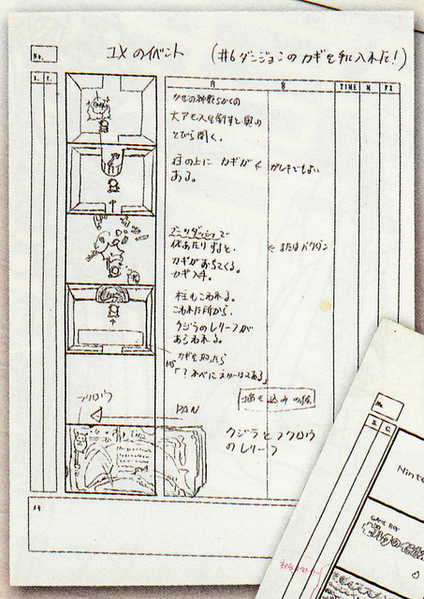 No.
ユメのイベント (#6ダンジョンのカギを手に入れた!)
S.
C.
A
B
TIME
M
FI
大アモスを倒すと奥の
とびら開く。
柱の上に カギが
ある。
ガレキでもよい
ブーツダッシュで
体あたりすると、
カギがおちてくる。
カギ入手。
← またはバクダン
柱もこわれる。
こわれた所から、
クジラのレリーフが
あらわれる。
カギを取ったら
フクロウ
PAN
クジラとフクロウ
のレリーフ
No.
S.
C.
Ninte
GAME BOY